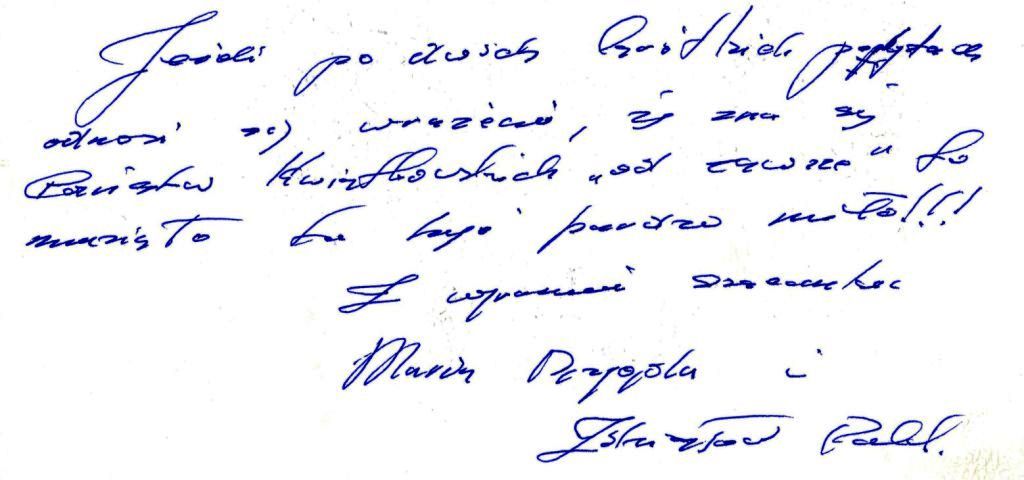 Jeśli po dwóch krótkich pobytach
odnosi się wrażenie, że zna się
Państwa Kwiatkowskich „od zawsze" to
musiało tu być bardzo miło!!!
Z wyrazami szacunku
Maria Przygoda i